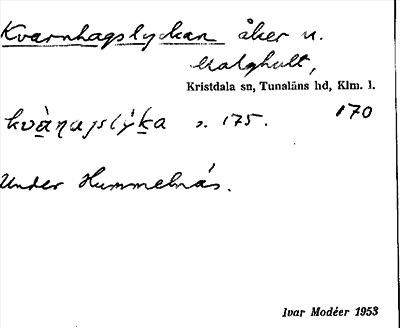 Kvarnhagslyckan åker u.
Malghult,
Kristdala sn, Tunaläns hd, Klm. l.
s. 175. 170
Under Hummelnäs.
Ivar Modéer 1953